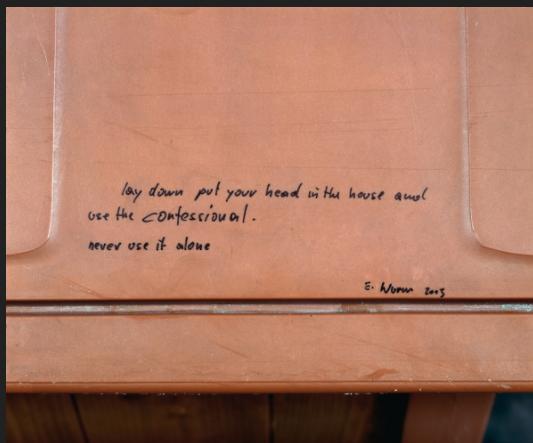 lay down put your head in the house and
use the confessional.
never use it alone
E. Wurm 2003